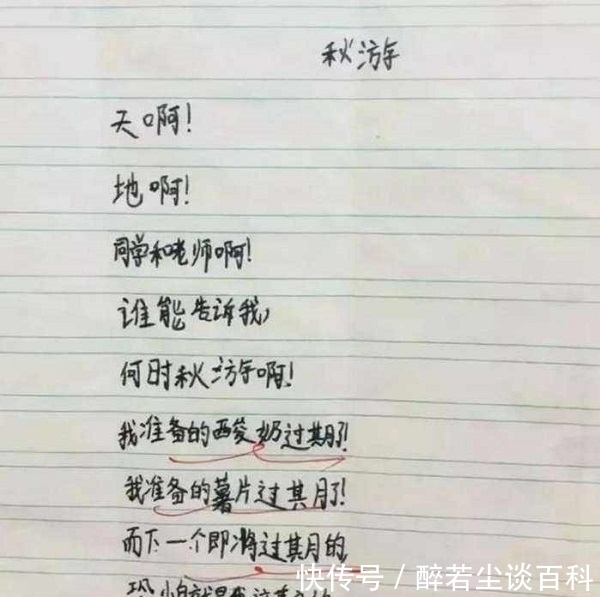 秋游
天啊!
地啊!
同学和老师啊!
谁能告诉我,
何时秋游啊!
我准备的酸奶过期了!
我准备的薯片过期了!
而下一个即将过期的,
恐怕就是我这
快传号 / 醉若尘谈百科